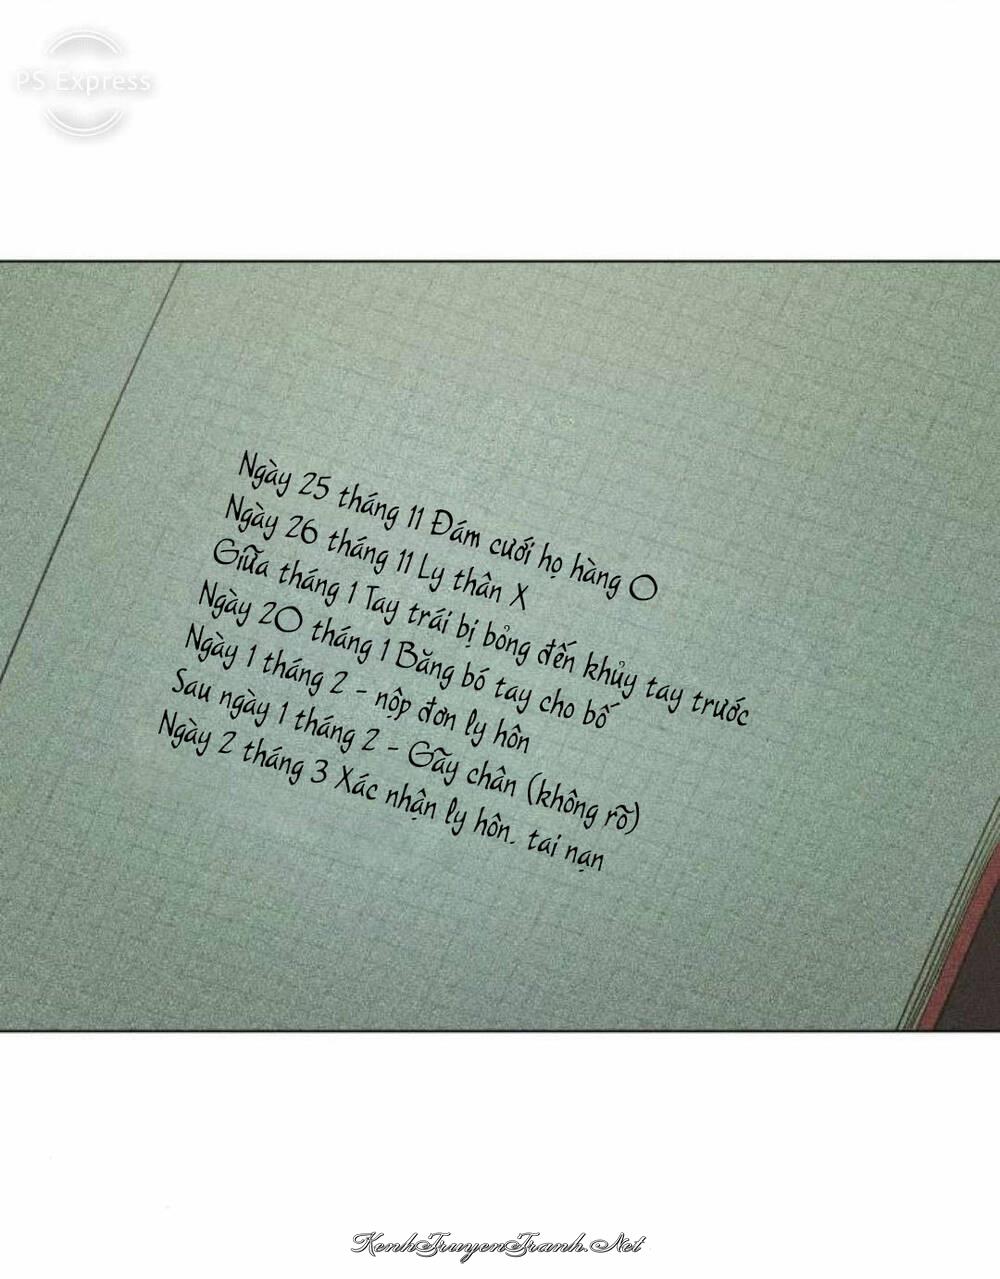 PS Express
Ngày 25 tháng 11 Đám cưới họ hàng O
Ngày 26 tháng 11 Ly thân X
Giữa tháng 1 Tay trái bị bỏng đến khủy tay trước
Ngày 20 tháng 1 Băng bó tay cho bố
Ngày 1 tháng 2 - nộp đơn ly hôn
Sau ngày 1 tháng 2 - Gãy chân (không rõ)
Ngày 2 tháng 3 Xác nhận ly hôn. tai nạn
KenhTruyenTranh.Net